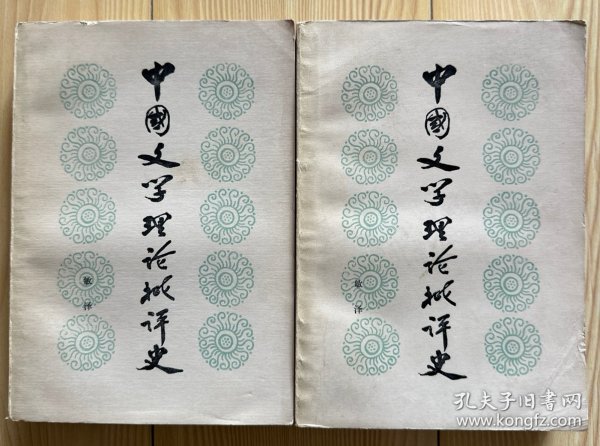 中國文学理论批评史
敏泽
中國文学理论批评史
敏泽
孔夫子旧书网
www.kongfz.com